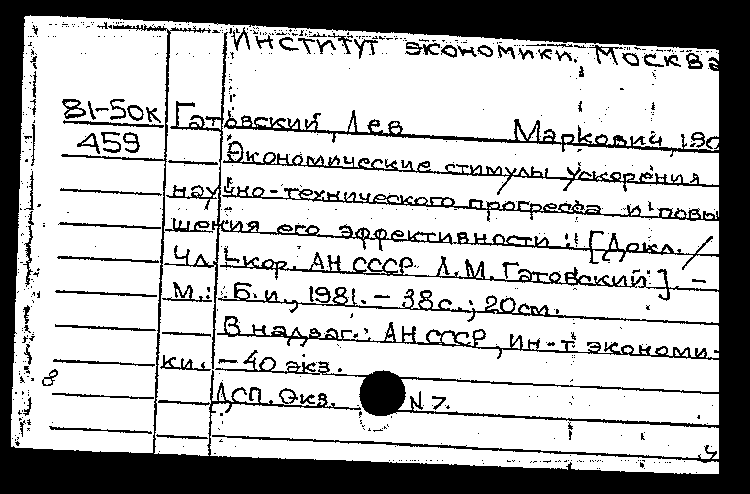 Институт экономики, Москва
81-50к Гатовский, Лев Маркович, 190
459 Экономические стимулы ускорения
научно-технического прогресса и повы
шения его эффективности : [Докл. /
Чл.-кор. АН СССР Л.М. Гатовский]. -
М.: Б.и., 1981. - 38с.; 20см.
В надзаг.: АН СССР, ин-т экономи-
ки. - 40 экз.
8
ДСП. Экз. N 7.